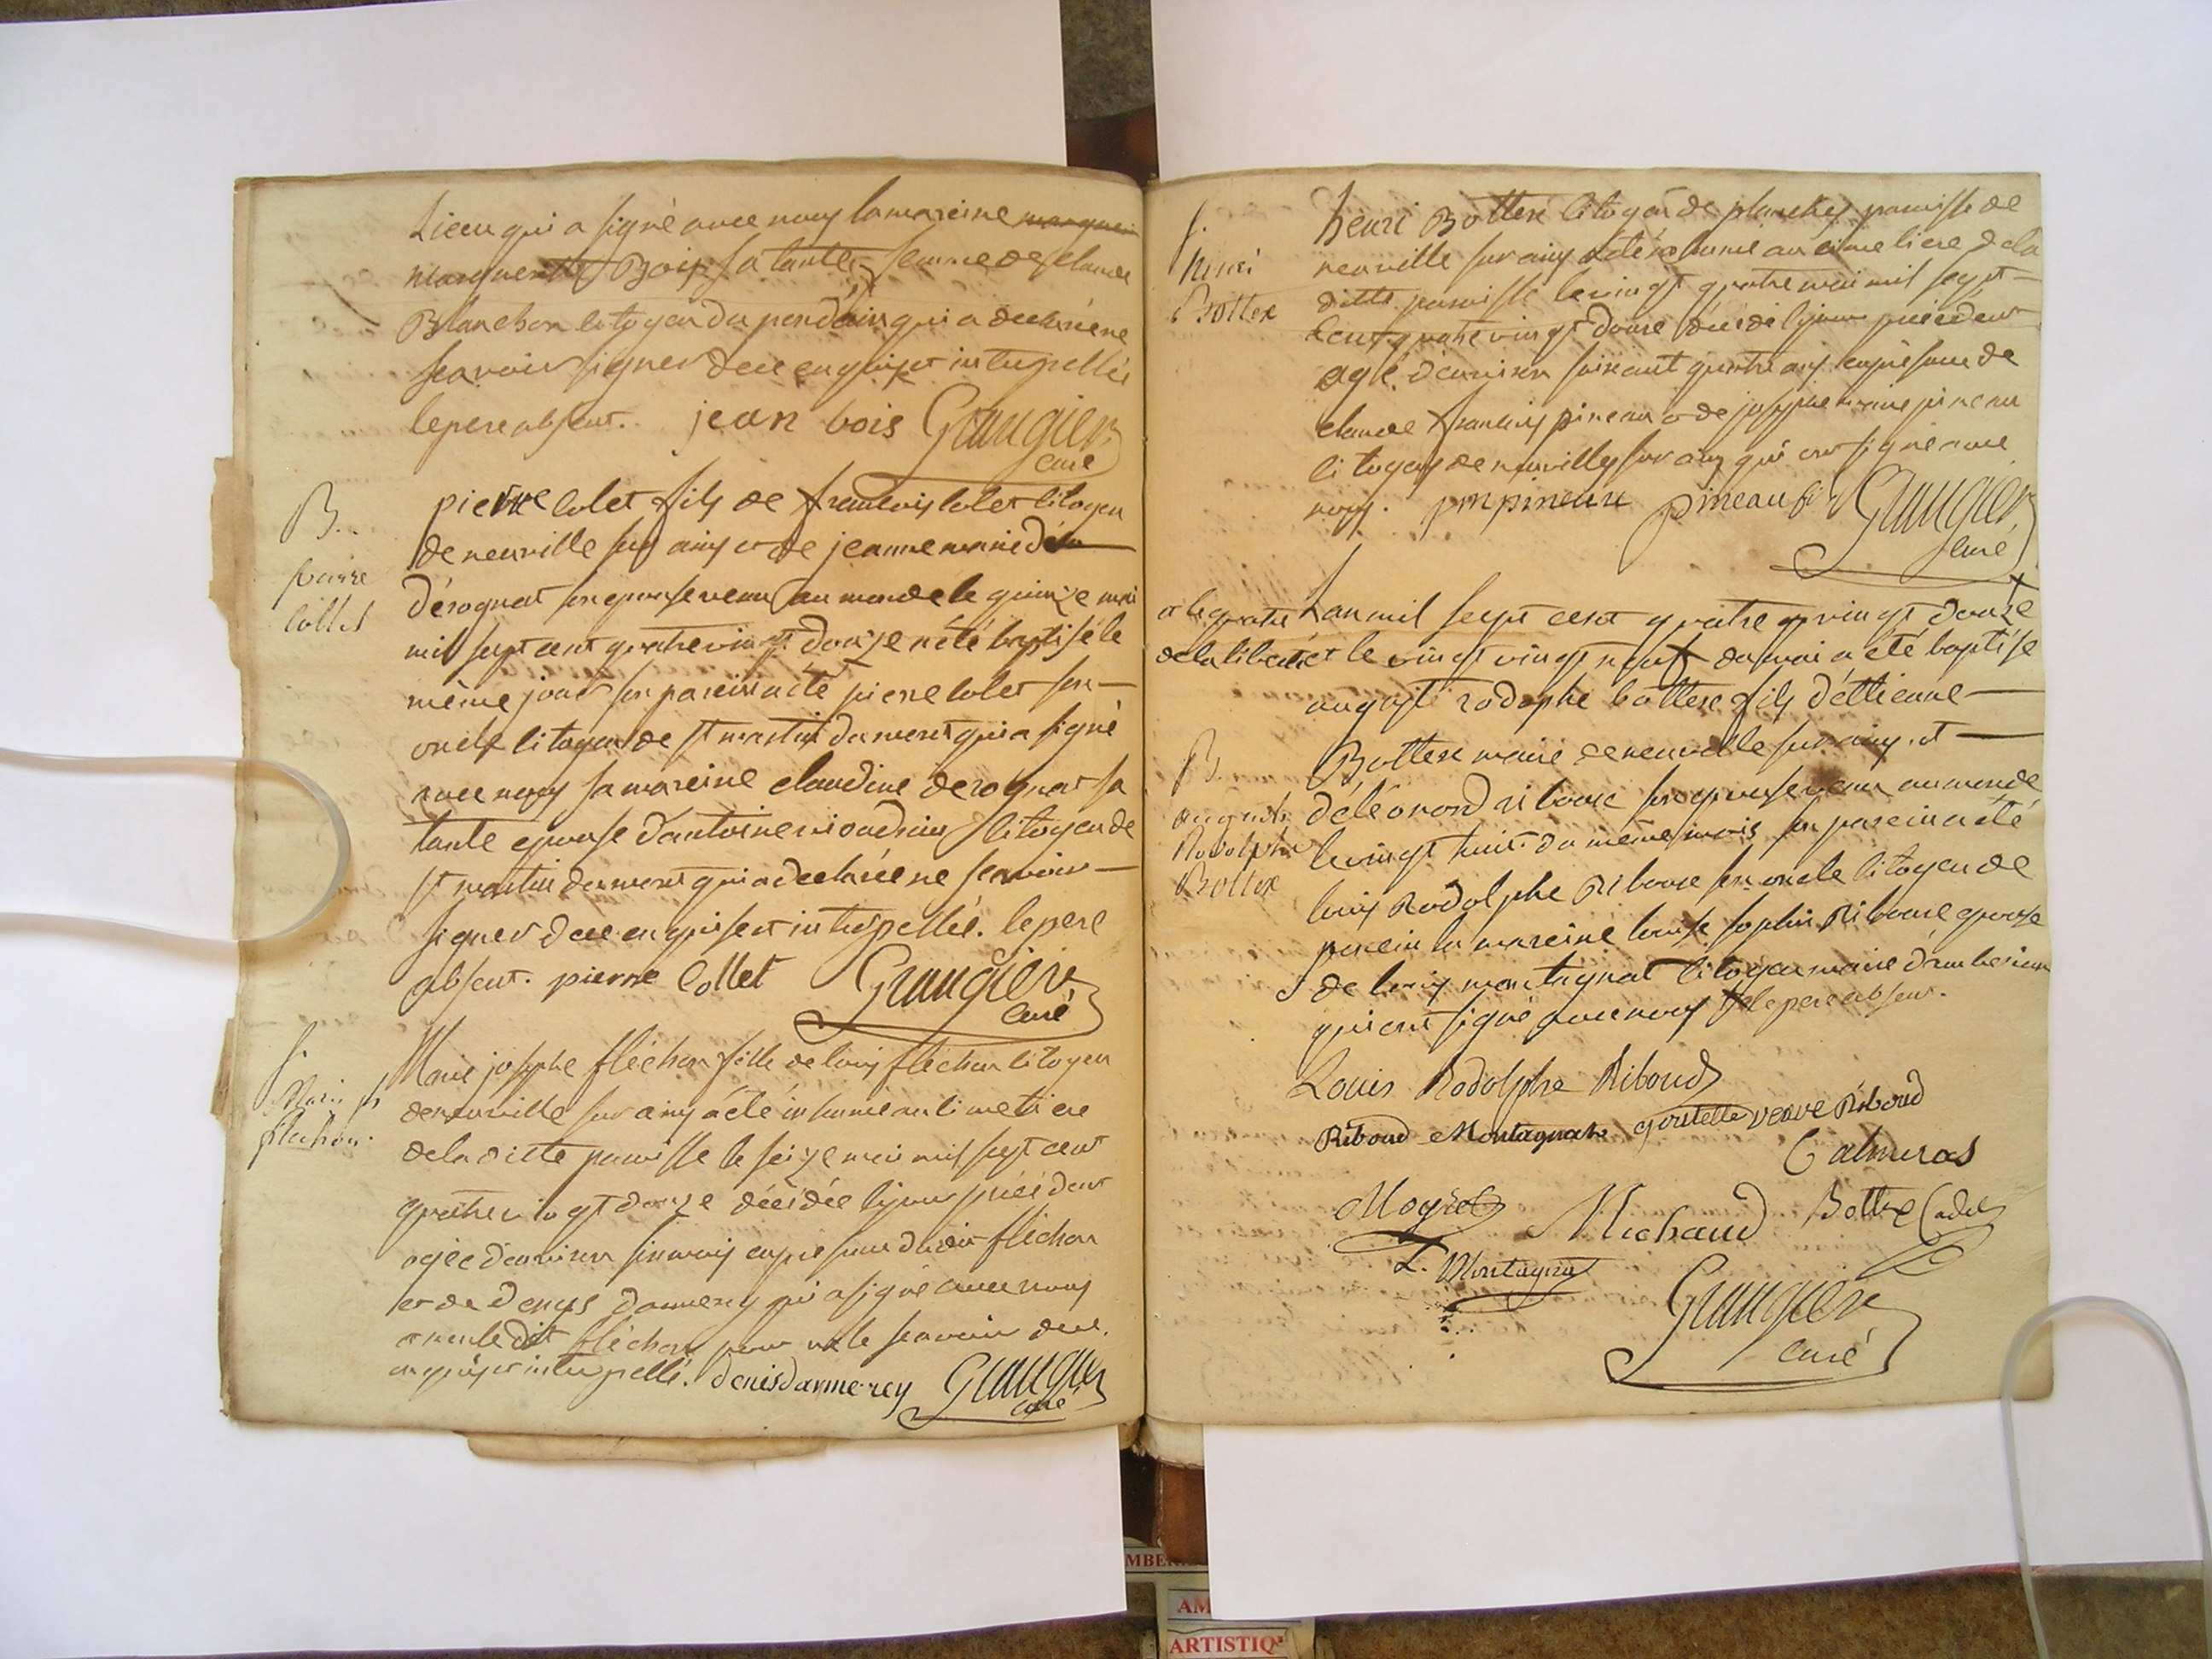 Lieu qui a signé avec nous la mareine marguerite
marguerite Bois sa tante femme de claude
Blanchon citoyen du pondain qui a declarée ne
scavoir signer de ce enquise et interpellée
le pere absent. jean bois Graugier
curé
B.
pierre
collet
pierre colet fils de francois colet citoyen
de neuville sur ains et de jeanne marie dero
dérognat son epouse venu au monde le quinze mai
mil sept cent quatre vingt douze a été baptisé le
même jour son parein a été pierre colet son
oncle citoyen de st martin du mont qui a signé
avec nous sa mareine claudine derognat sa
tante epouse d'antoine citoyen de
st martin du mont qui a declarée ne scavoir
signer de ce enquise et interpellée. le pere
absent. pierre collet Graugier
curé
f.
Marie jh
flechon.
Marie josephe fléchon fille de louis fléchon citoyen
de neuville sur ains a été inhumée au cimetiere
de la ditte paroisse le seize mai mil sept cent
quatre vingt douze décédée le jour précédent
agée d'environ six mois en présence dudit fléchon
et de denys danmerey qui a signé avec nous
le dit fléchon pour ne le scavoir de ce
enquis et interpellé. denis danmerey Graugier
curé
f.
henri
Bottex
henri Bottex citoyen de planches paroisse de
neuville sur ains a été inhumé au cimetiere de la
ditte paroisse le vingt quatre mai mil sept
cent quatre vingt douze décédé le jour précédent
agé d'environ soixante quatre ans en présence de
claude francois pineau et de josephe marie pineau
citoyens de neuville sur ains qui ont signé avec
nous. pineau pineau fils Graugier
curé
L'an mil sept cent quatre vingt douze
et le quatre
de la liberté et le vingt vingt neuf du mai a été baptisé
auguste rodophe bottex fils d'ettienne
B.
auguste
Rodolphe
Bottex
Bottex maire de neuville sur ains et
d'éléonord riboud son epouse venu au monde
le vingt huit du même mois son parein a été
louis Rodolphe Riboud son oncle citoyen de
la mareine louise sophie Riboud epouse
de louis montagnat citoyen maire d'amberieux
qui ont signé avec nous le pere absent.
Louis Rodolphe Riboud
Riboud Montagnat goutette veuve Riboud
Calmeras
Moyret Michaud Bottex Cadet
L. Montagnat
Graugier
curé
AM
ARTISTIQ